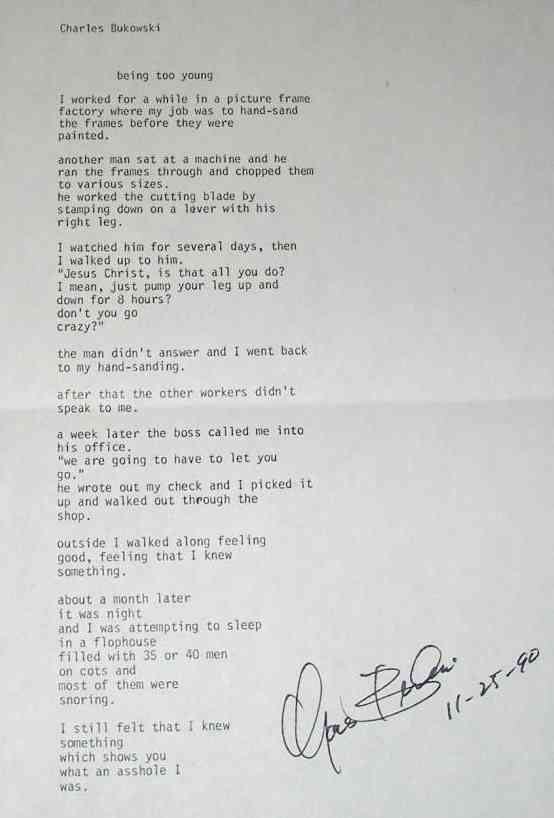 Charles Bukowski
being too young
I worked for a while in a picture frame
factory where my job was to hand-sand
the frames before they were
painted.
another man sat at a machine and he
ran the frames through and chopped them
to various sizes.
he worked the cutting blade by
stamping down on a lever with his
right leg.
I watched him for several days, then
I walked up to him.
"Jesus Christ, is that all you do?
I mean, just pump your leg up and
down for 8 hours?
don't you go
crazy?"
the man didn't answer and I went back
to my hand-sanding.
after that the other workers didn't
speak to me.
a week later the boss called me into
his office.
"we are going to have to let you
go."
he wrote out my check and I picked it
up and walked out through the
shop.
outside I walked along feeling
good, feeling that I knew
something.
about a month later
it was night
and I was attempting to sleep
in a flophouse
filled with 35 or 40 men
on cots and
most of them were
snoring.
I still felt that I knew
something
which shows you
what an asshole I
was.
11-25-90